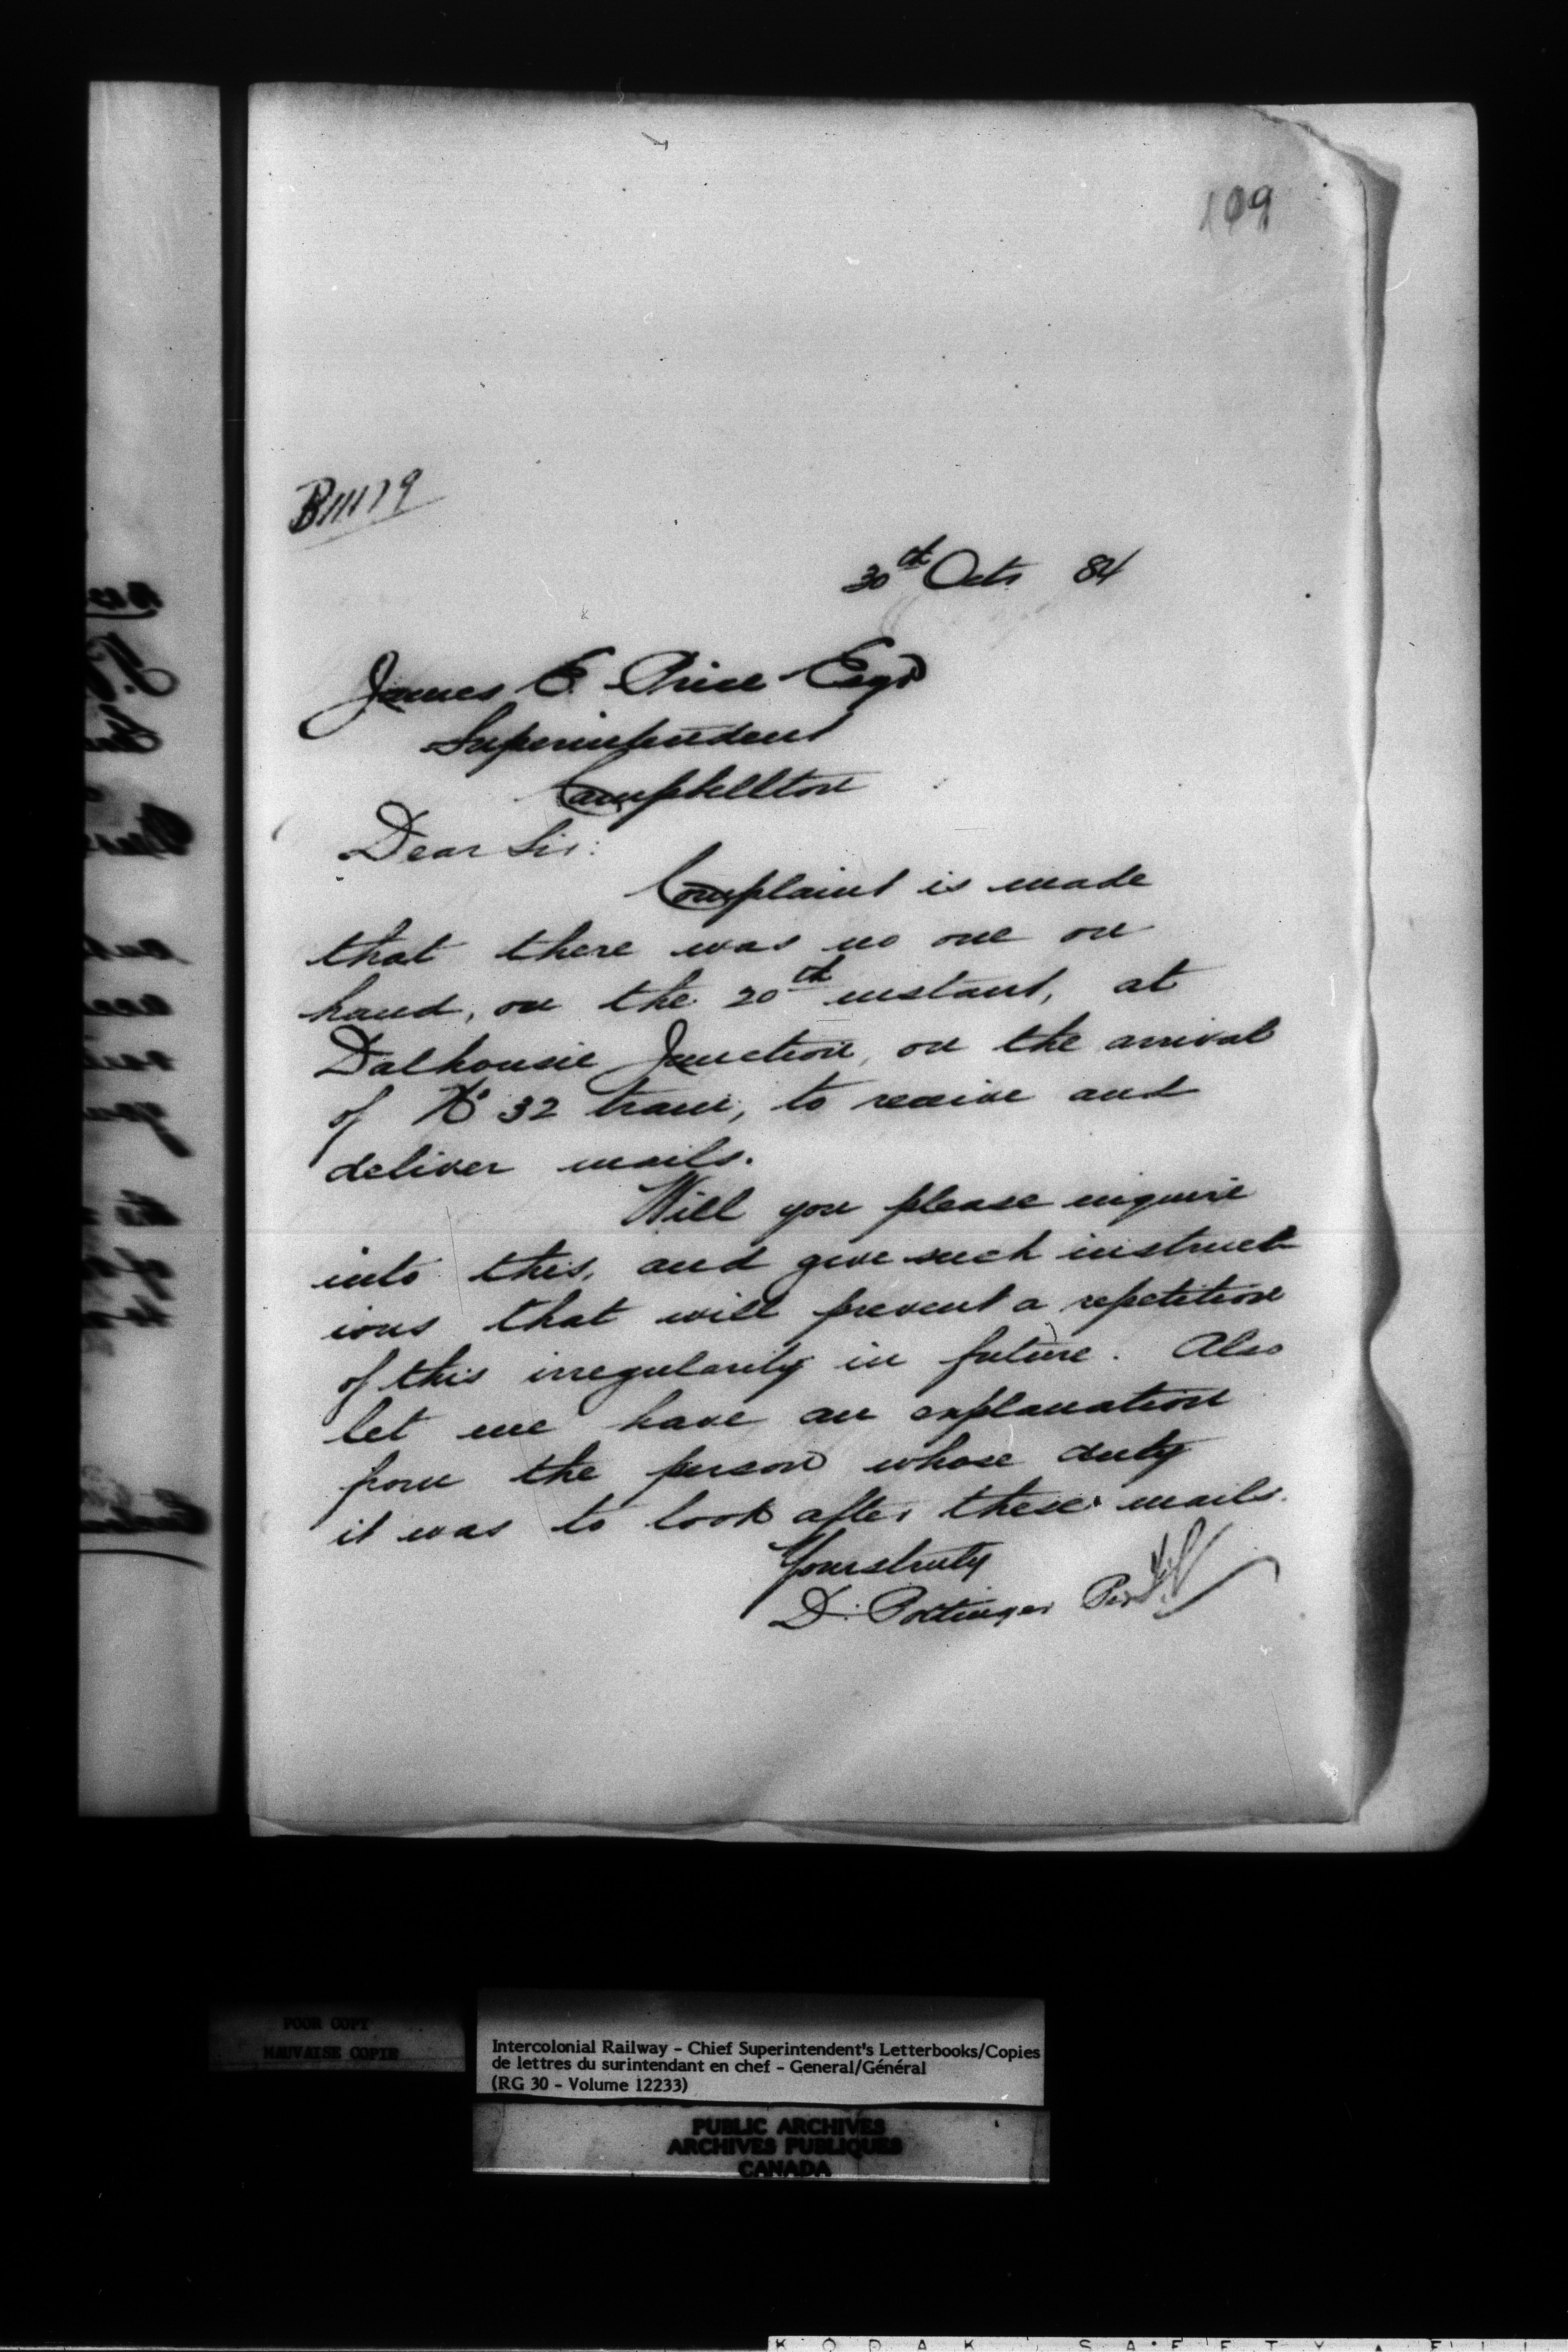 109
B11179
30th Octr 84
James E. Price Esqr
Superintendent
Campbellton
Dear Sir:
Complaint is made
that there was no one on
hand, on the 20th instant, at
Dalhousie Junction, on the arrival
of No 32 train, to receive and
deliver mails.
Will you please inquire
into this, and give such instruct-
ions that will prevent a repetition
of this irregularity in future. Also
let me have an explanation
from the person whose duty
it was to look after these mails.
Yours truly
D. Pottinger Per
POOR COPY
MAUVAISE COPIE
Intercolonial Railway - Chief Superintendent's Letterbooks/Copies
de lettres du surintendant en chef - General/Général
(RG 30 - Volume 12233)
PUBLIC ARCHIVES
ARCHIVES PUBLIQUES
CANADA
KODAK SAFETY